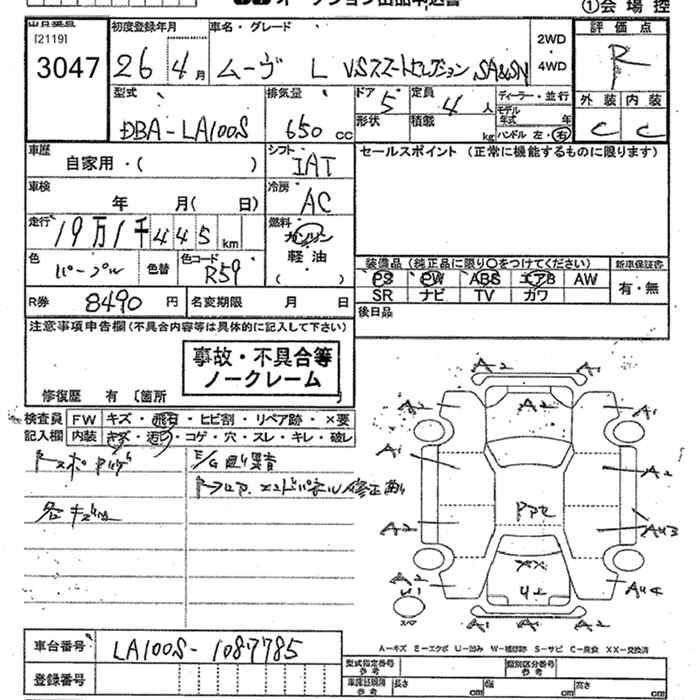 オークション出品申込書
①会場控
[2119]
3047
初度登録年月
26年4月
車名・グレード
ムーヴ L VSスマートセレクション SA&SN
2WD
4WD
評価点
R
外装 内装
C C
型式
DBA-LA100S
排気量
650 CC
ドア
5
定員
4人
形状
積載
kg
ディーラー・並行
モデル年式 年
ハンドル 左・右
車歴
自家用・( )
シフト
IAT
セールスポイント (正常に機能するものに限ります)
車検
年 月( 日)
冷房
AC
走行
19万1千445km
燃料
ガソリン
軽油
( )
色
パープル
色替
色コード
R59
装備品(純正品に限り○をつけてください)
新車保証書
PS PW ABS エアB AW
SR ナビ TV カワ
有・無
R券
8490円
名変期限 月 日
後日品
注意事項申告欄(不具合内容等は具体的に記入して下さい)
事故・不具合等
ノークレーム
修復歴 有〔箇所
検査員
記入欄
FW キズ・飛石・ヒビ割・リペア跡・×要
内装 キズ・汚れ・コゲ・穴・スレ・キレ・破レ
E/G
トランクフロア、エンドパネル修正
A2 A1
A2 A1
A1 A2
PPC
A2 AU3
XX
A2
U2
AU4
A1 A2
A-キズ E-エクボ U-凹み W-補修跡 S-サビ C-腐食 XX-交換済
車台番号
LA100S-1087785
登録番号
型式指定番号
参考
類別区分番号
参考
車庫証明用
参考
長さ cm 幅 cm 高さ cm